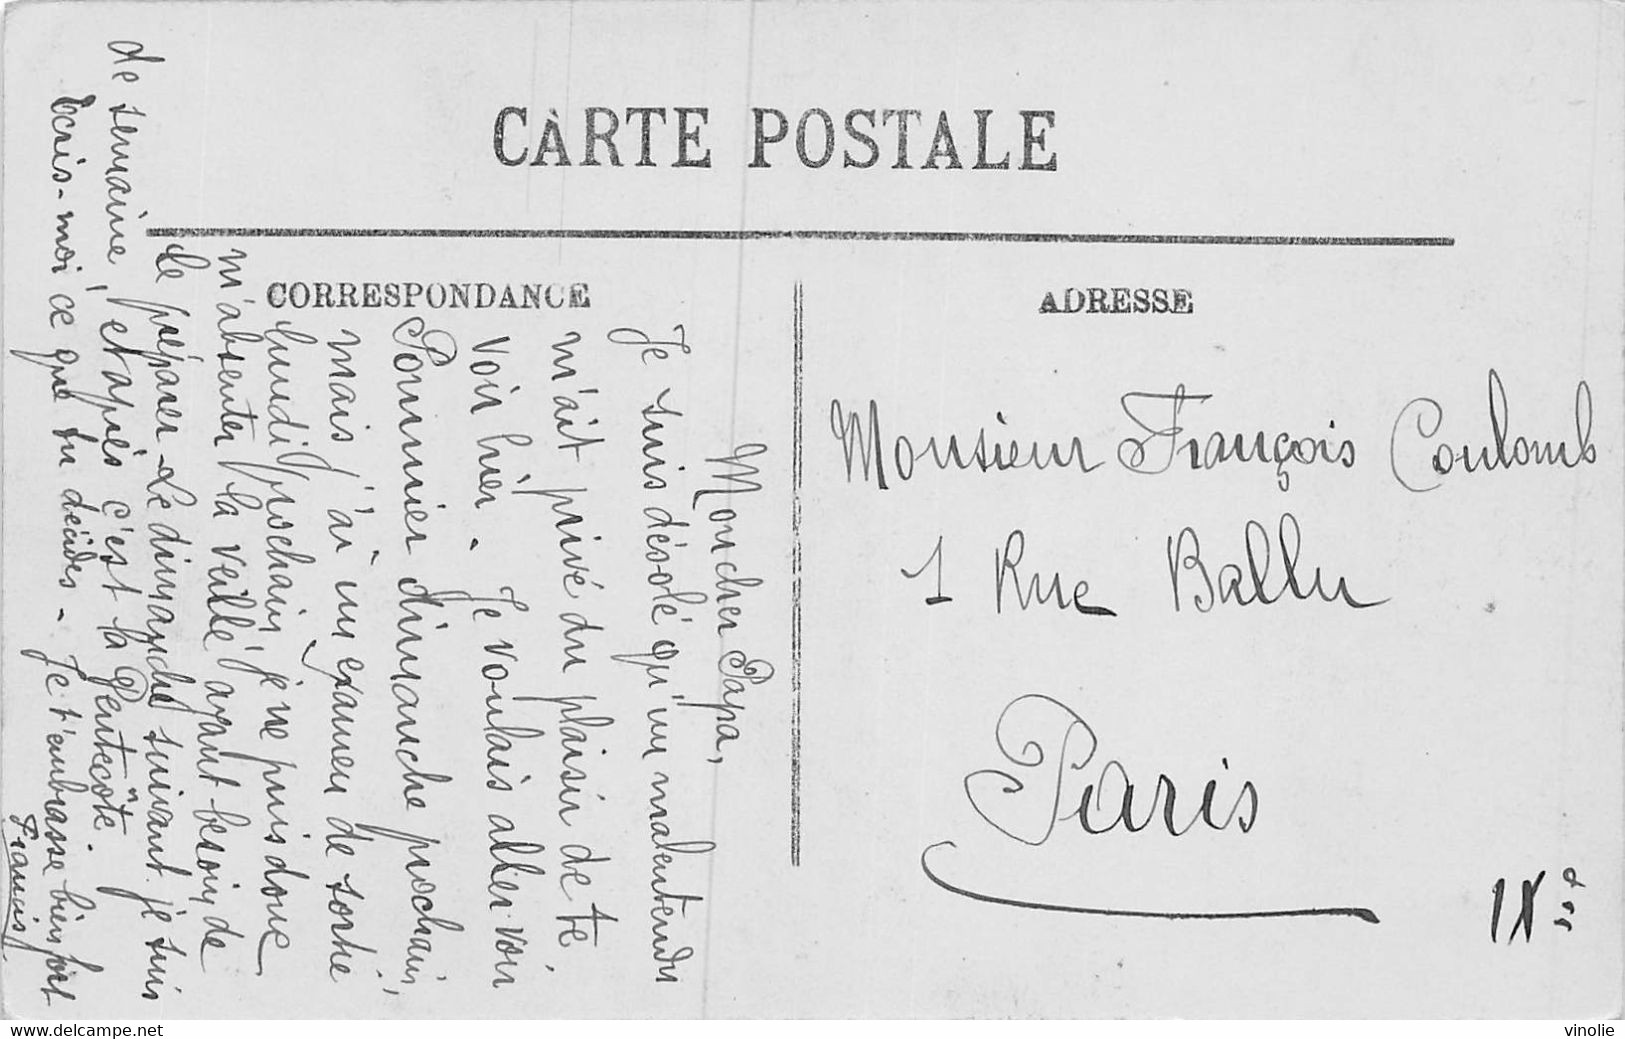 CARTE POSTALE
CORRESPONDANCE
ADRESSE
Mon cher Papa,
Je suis désolé qu'un malentendu
m'ait privé du plaisir de te
voir hier. Je voulais aller voir
Pommier dimanche prochain,
mais j'ai un examen de sortie
lundi prochain, je ne puis donc
m'absenter la veille ayant besoin de
le préparer. Le dimanche suivant je suis
de semaine, et après c'est la Pentecôte.
Ecris-moi ce que tu décides. Je t'embrasse bien fort
Francis
Monsieur François Coulomb
1 Rue Ballu
Paris
IX
www.delcampe.net
vinolie